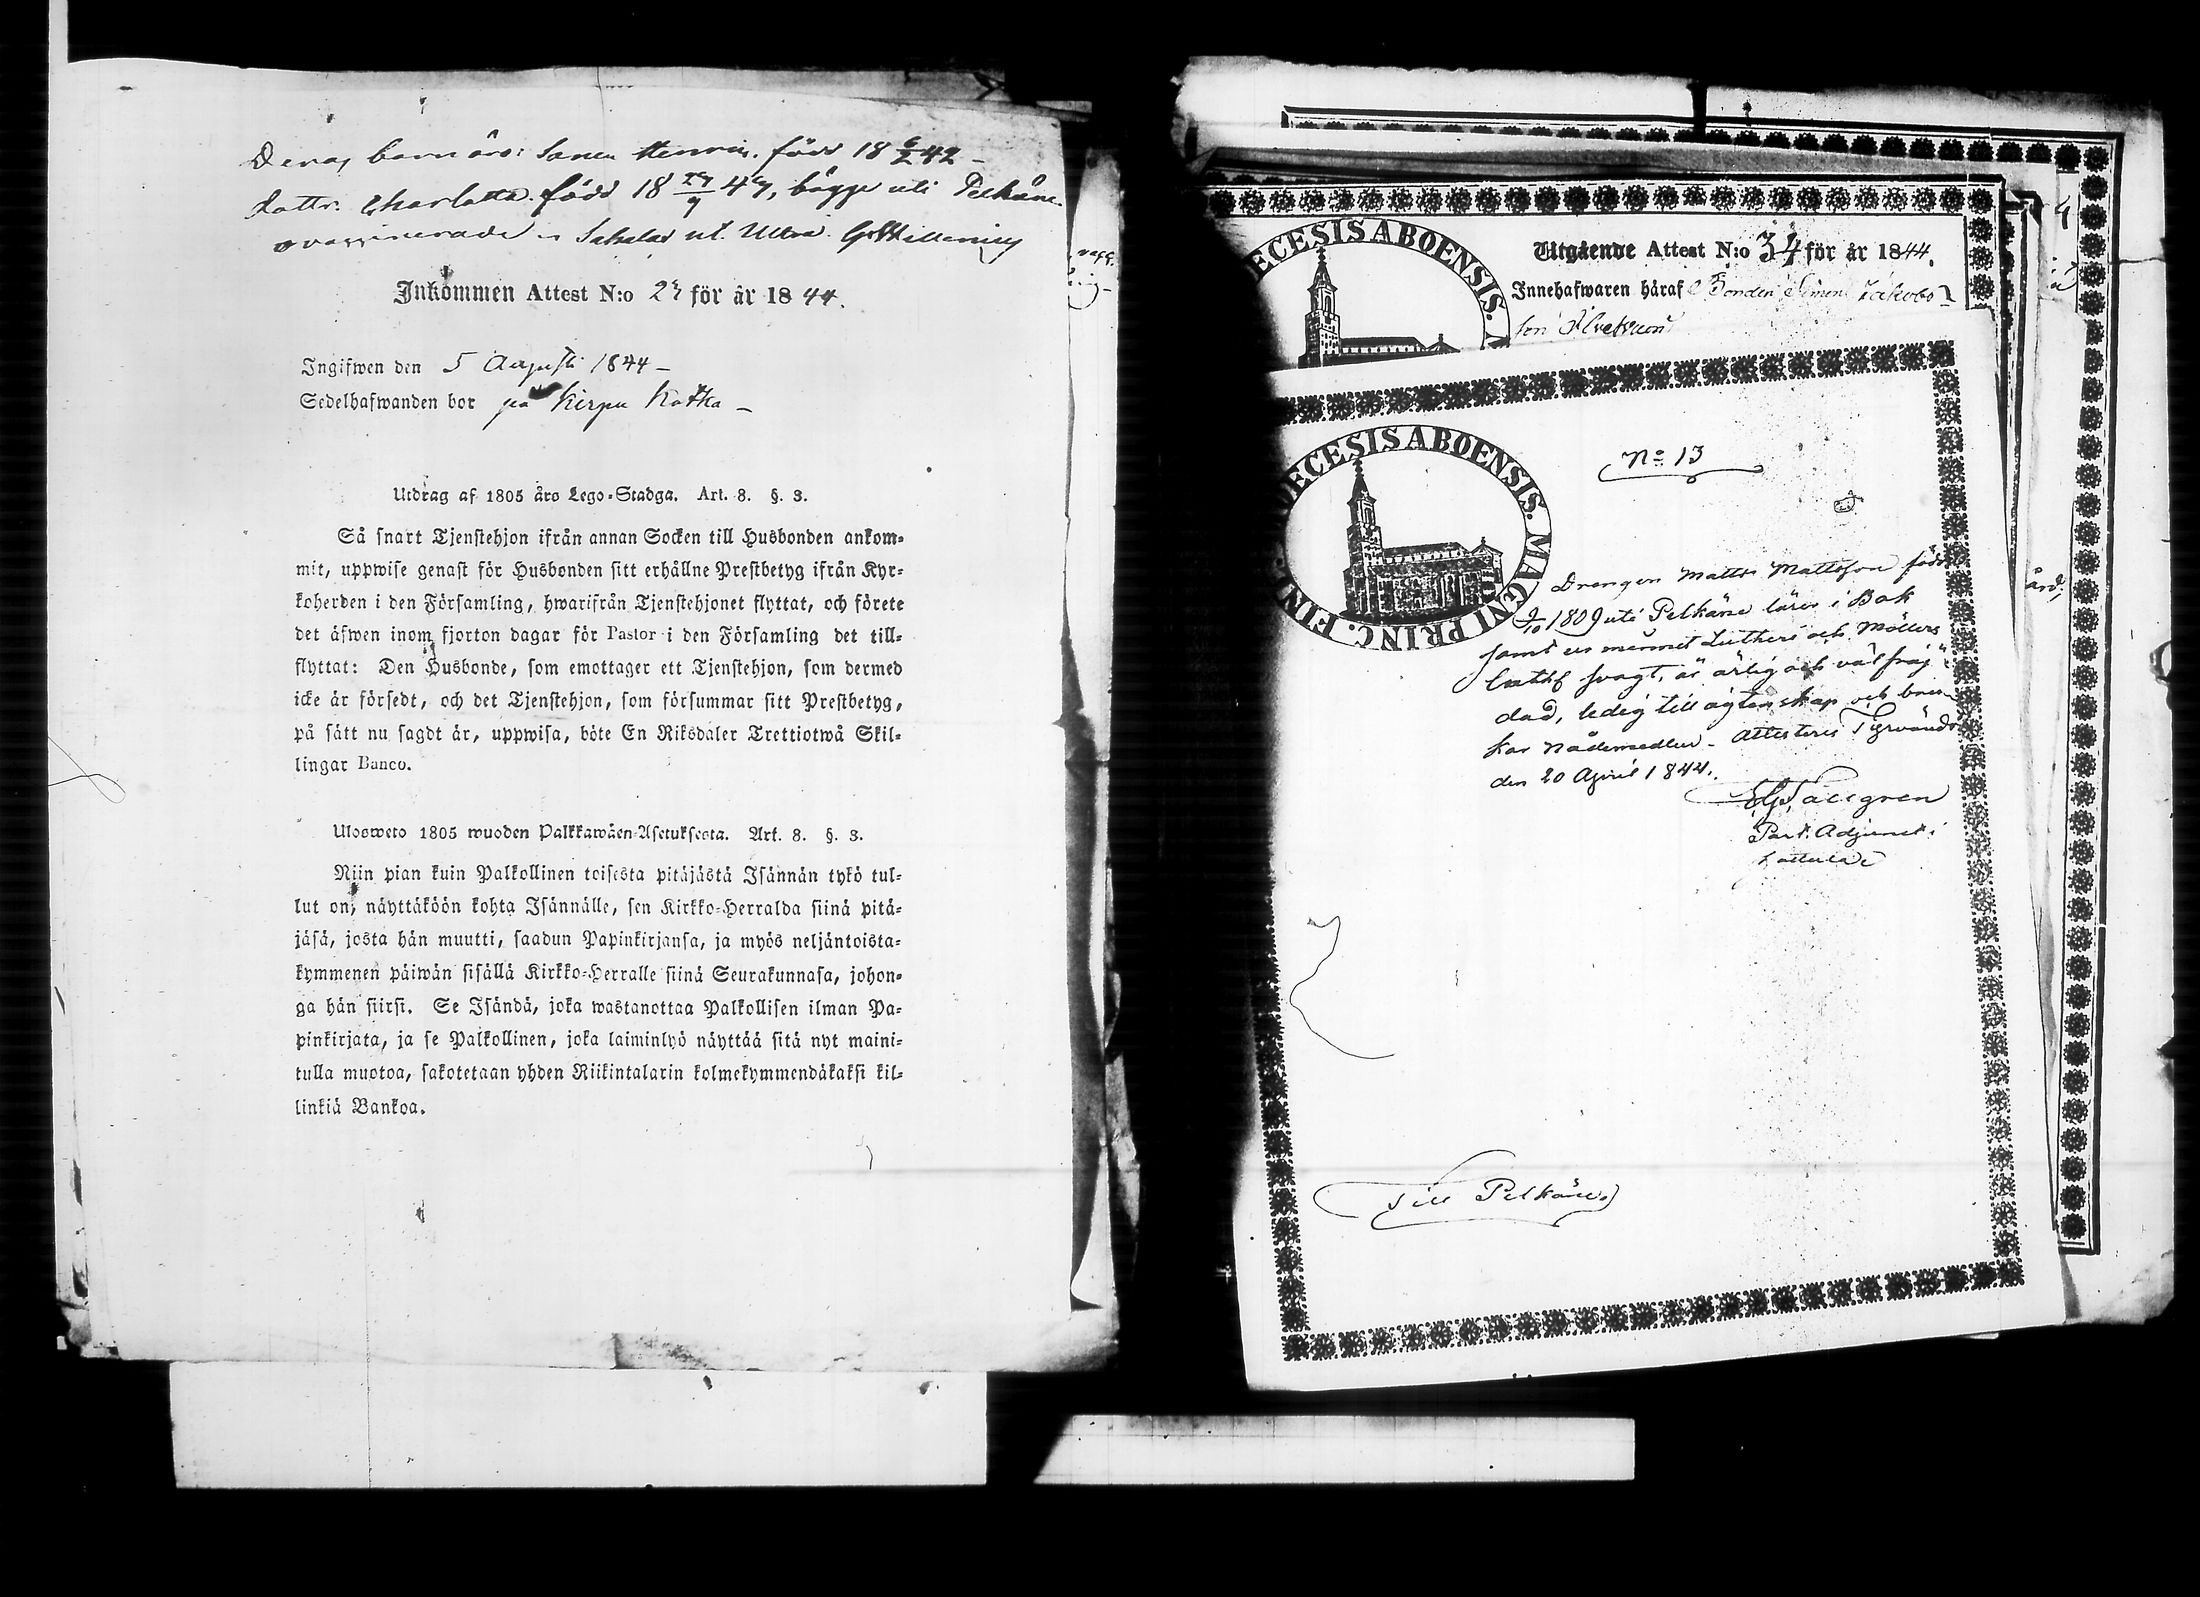 Deras barn äro: Sonen Henric, född 18 6/2 42 –
dottr. Charlotta född 18 27/9 43, bägge uti Pelkäne
ovaccinerade
Inkommen Attest N:o 27 för år 1844.
Ingifwen den 5 Augusti 1844 –
Sedelhafwanden bor på Kirpu Kotka –
Utdrag af 1805 års Lego-Stadga. Art. 8. §. 3.
Så snart Tjenstehjon ifrån annan Socken till Husbonden ankom-
mit, uppwise genast för Husbonden sitt erhållne Prestbetyg ifrån Kyr-
koherden i den Församling, hwarifrån Tjenstehjonet flyttat, och förete
det äfwen inom fjorton dagar för Pastor i den Församling det till-
flyttat: Den Husbonde, som emottager ett Tjenstehjon, som dermed
icke är försedt, och det Tjenstehjon, som försummar sitt Prestbetyg,
på sätt nu sagdt är, uppwisa, böte En Riksdaler Trettiotwå Skil-
lingar Banco.
Ulosweto 1805 wuoden Palkkawäen-Asetuksesta. Art. 8. §. 3.
Niin pian kuin Palkollinen toisesta pitäjästä Isännän tykö tul-
lut on, näyttäköön kohta Isännälle, sen Kirkko-Herralda siinä pitä-
jäsä, josta hän muutti, saadun Papinkirjansa, ja myös neljäntoista-
kymmenen päiwän sisällä Kirkko-Herralle siinä Seurakunnasa, johon-
ga hän siirsi. Se Isändä, joka wastanottaa Palkollisen ilman Pa-
pinkirjata, ja se Palkollinen, joka laiminlyö näyttää sitä nyt maini-
tulla muotoa, sakotetaan yhden Riikintalarin kolmekymmendäkaksi kil-
linkiä Bankoa.
ECESIS ABOENSIS.
Utgående Attest N:o 34 för år 1844.
Innehafwaren häraf Bonden Simon Jakobs-
son
DECESIS ABOENSIS. MAGNI PRINC. FIN
No 13
Drengen Matts Mattsson född
/10 1809 uti Pelkäne läser i Bok
samt ur minnet Lutheri och Möllers
svagt, är ärlig och välfräj-
dad, ledig till ägtenskap och bru-
kar Nådemedlen. Attesterar Tyrvändö
den 20 April 1844.
Tallgren
Past. Adjunct i
Till Pelkäne